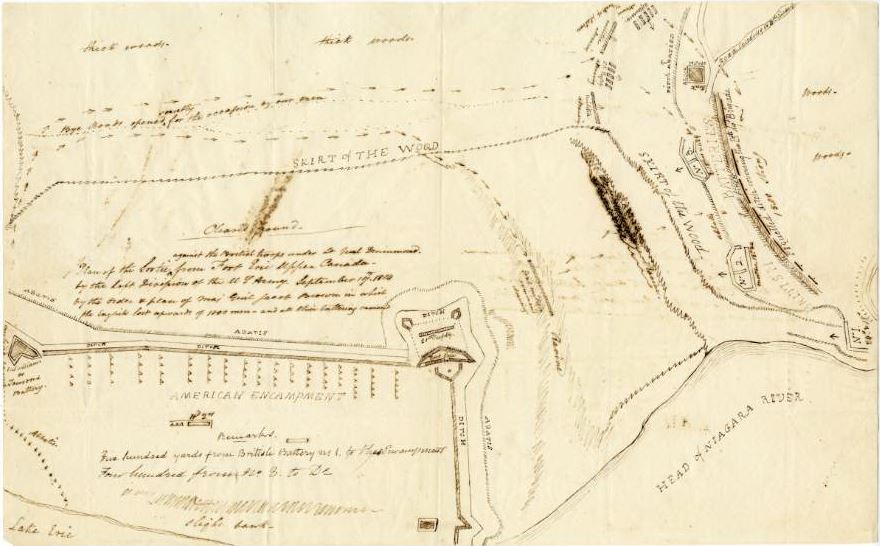 thick woods.
thick woods.
Bye Roads opened secretly for the occasion by our men
SKIRT of THE WOOD
SKIRT of the Wood
Woods.
Woods.
Cleared Ground.
Plan of the Sortie from Fort Erie Upper Canada
against the British troops under Lt Genl Drummond.
by the left Division of the U S Army September 17th 1814
by the order & plan of Maj Genl Jacob Brown in which
the british lost upwards of 1000 men - and all their battery
ABATIS
ABATIS
DITCH
DITCH
DITCH
Battery.
AMERICAN ENCAMPMENT
Remarks.
Five hundred yards from British Battery No 1. to the Encampment
Four hundred from No 3. to Do
Abattis
slight bank.
Lake Erie
DITCH
ABATIS
Ravine
N 3
N 2
N 1
HEAD of NIAGARA RIVER